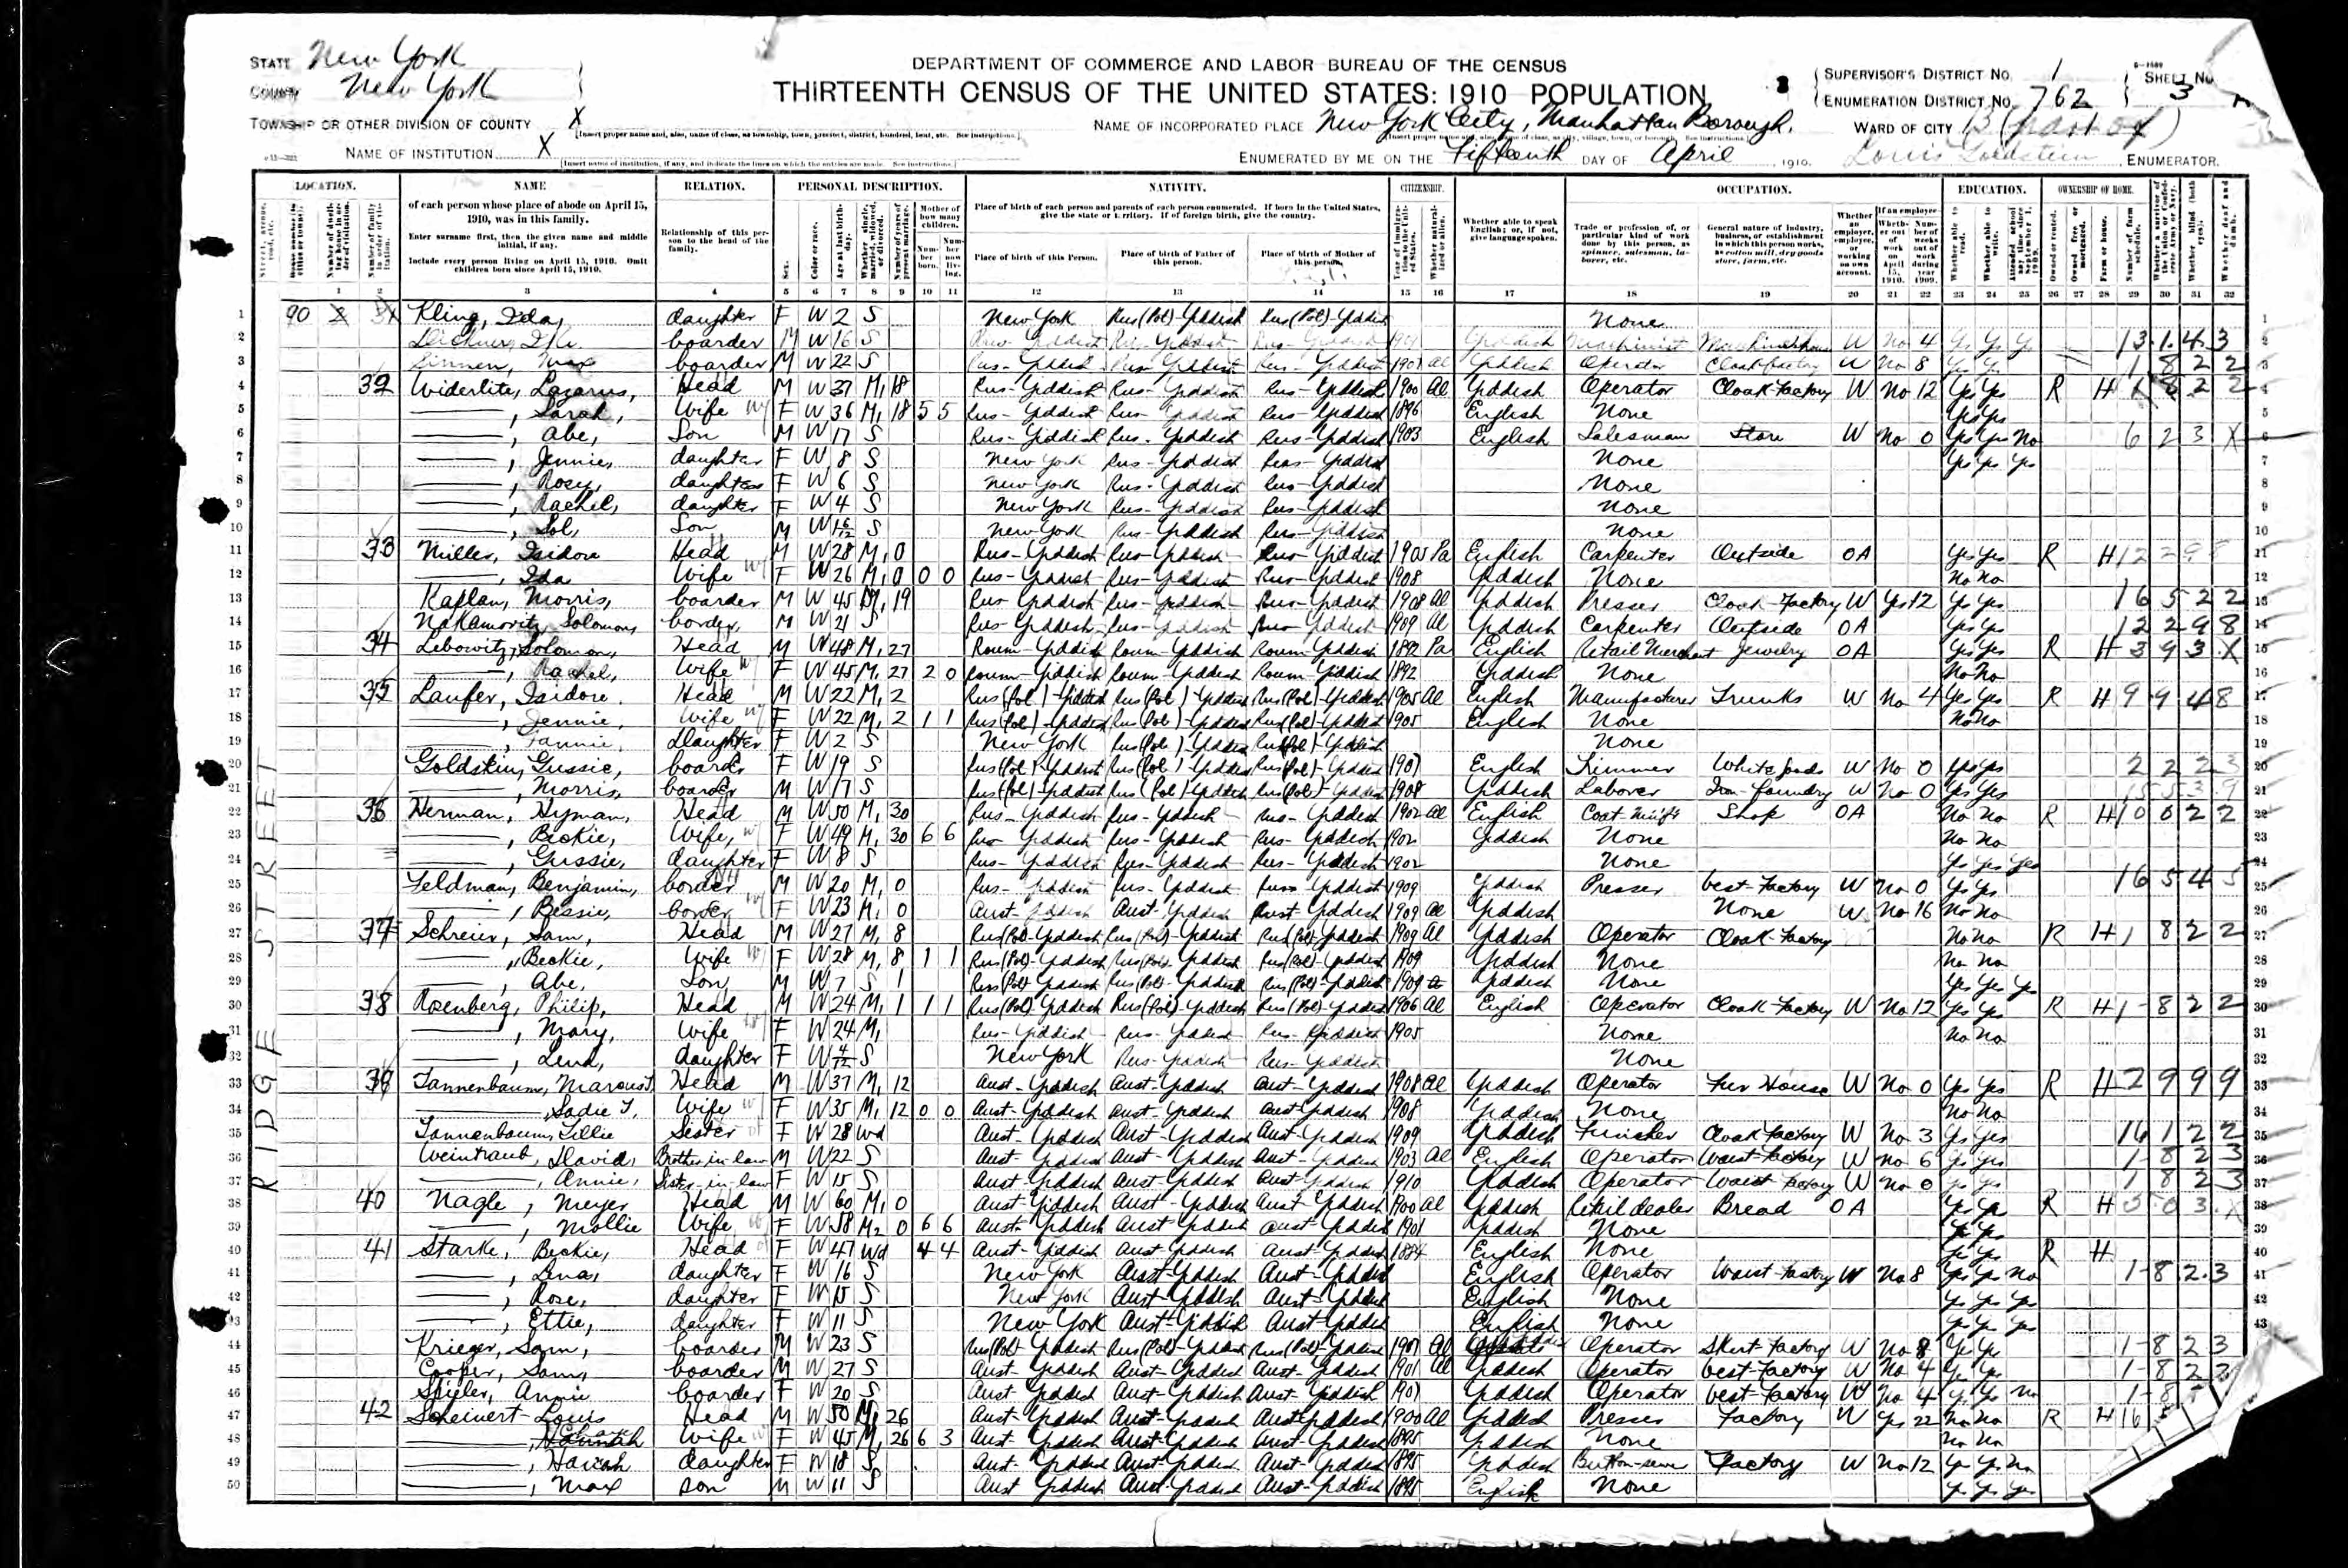 DEPARTMENT OF COMMERCE AND LABOR BUREAU OF THE CENSUS
THIRTEENTH CENSUS OF THE UNITED STATES: 1910 POPULATION
STATE New York
COUNTY New York
TOWNSHIP OR OTHER DIVISION OF COUNTY X
NAME OF INSTITUTION X
NAME OF INCORPORATED PLACE New York City, Manhattan Borough.
ENUMERATED BY ME ON THE Fifteenth DAY OF April, 1910. Louis Goldstein, ENUMERATOR.
SUPERVISOR'S DISTRICT No. 1
ENUMERATION DISTRICT No. 762
SHEET No. 3 A
WARD OF CITY 13 (part of)
LOCATION. NAME RELATION. PERSONAL DESCRIPTION. NATIVITY. CITIZENSHIP. OCCUPATION. EDUCATION. OWNERSHIP OF HOME.
of each person whose place of abode on April 15, 1910, was in this family.
Enter surname first, then the given name and middle initial, if any.
Include every person living on April 15, 1910. Omit children born since April 15, 1910.
Relationship of this person to the head of the family.
Place of birth of each person and parents of each person enumerated. If born in the United States, give the state or territory. If of foreign birth, give the country.
Place of birth of this Person. Place of birth of Father of this person. Place of birth of Mother of this person.
Whether able to speak English; or, if not, give language spoken.
Trade or profession of, or particular kind of work done by this person, as spinner, salesman, laborer, etc.
General nature of industry, business, or establishment in which this person works, as cotton mill, dry goods store, farm, etc.
RIDGE STREET
1 90 Kling, Ida, daughter F W 2 S New York Rus(Pol)-Yiddish Rus(Pol)-Yiddish None
2 boarder M W 16 S Yiddish Machinist W No 4
3 boarder M W 22 S Rus-Yiddish Rus-Yiddish Rus-Yiddish Al Yiddish Operator Cloak factory W No 8 1 8 2 2
4 32 Widerlitz, Lazarus, Head M W 37 M1 18 Rus-Yiddish Rus-Yiddish Rus-Yiddish 1900 Al Yiddish Operator Cloak Factory W No 12 Yes Yes R H 1 8 2 2
5 Sarah, Wife F W 36 M1 18 5 5 Rus-Yiddish Rus-Yiddish Rus-Yiddish 1896 English None Yes Yes
6 Abe, Son M W 17 S Rus-Yiddish Rus-Yiddish Rus-Yiddish 1903 English Salesman Store W No 0 Yes Yes No 6 2 3 X
7 Jennie, daughter F W 8 S New York Rus-Yiddish Rus-Yiddish None Yes Yes Yes
8 Rosey, daughter F W 6 S New York Rus-Yiddish Rus-Yiddish None
9 Rachel, daughter F W 4 S New York Rus-Yiddish Rus-Yiddish None
10 Sol, Son M W S New York Rus-Yiddish Rus-Yiddish None
11 33 Miller, Isidore Head M W 28 M1 0 Rus-Yiddish Rus-Yiddish Rus-Yiddish 1905 Pa English Carpenter Outside OA Yes Yes R H 1 2 2 9 8
12 Ida Wife F W 26 M1 0 0 0 Rus-Yiddish Rus-Yiddish Rus-Yiddish 1908 Yiddish None No No
13 Kaplan, Morris, boarder M W 45 M1 19 Rus-Yiddish Rus-Yiddish Rus-Yiddish 1908 Al Yiddish Presser Cloak-Factory W Yes 12 Yes Yes 16 5 2 2
14 Nakamovitz, Solomon, border M W 21 S Rus-Yiddish Rus-Yiddish Rus-Yiddish 1909 Al Yiddish Carpenter Outside OA Yes Yes 12 2 9 8
15 34 Lebowitz, Solomon, Head M W 48 M1 27 Roum-Yiddish Roum-Yiddish Roum-Yiddish 1892 Pa English Retail Merchant Jewelry OA Yes Yes R H 3 9 3 X
16 Rachel, Wife F W 45 M1 27 2 0 Roum-Yiddish Roum-Yiddish Roum-Yiddish 1892 Yiddish None No No
17 35 Laufer, Isidore. Head M W 22 M1 2 Rus(Pol)-Yiddish Rus(Pol)-Yiddish Rus(Pol)-Yiddish 1905 Al English Manufacturer Trunks W No 4 Yes Yes R H 9 9 4 8
18 Jennie, Wife F W 22 M1 2 1 1 Rus(Pol)-Yiddish Rus(Pol)-Yiddish Rus(Pol)-Yiddish 1905 English None No No
19 Fannie, Daughter F W 2 S New York Rus(Pol)-Yiddish Rus(Pol)-Yiddish None
20 Goldstein, Gussie, boarder F W 19 S Rus(Pol)-Yiddish Rus(Pol)-Yiddish Rus(Pol)-Yiddish 1907 English Trimmer White Goods W No 0 Yes Yes 2 2 2 3
21 Morris, boarder M W 17 S Rus(Pol)-Yiddish Rus(Pol)-Yiddish Rus(Pol)-Yiddish 1908 Yiddish Laborer Iron-foundry W No 0 Yes Yes
22 36 Herman, Hyman, Head M W 50 M1 30 Rus-Yiddish Rus-Yiddish Rus-Yiddish 1902 Al English Coat Shop OA No No R H 10 0 2 2
23 Beckie, Wife, F W 49 M1 30 6 6 Rus-Yiddish Rus-Yiddish Rus-Yiddish 1902 Yiddish None No No
24 Gussie, daughter F W 8 S Rus-Yiddish Rus-Yiddish Rus-Yiddish 1902 None Yes Yes Yes
25 Feldman, Benjamin, border M W 20 M1 0 Rus-Yiddish Rus-Yiddish Russ-Yiddish 1909 Yiddish Presser Vest-factory W No 0 Yes Yes 16 5 4 5
26 Bessie, border F W 23 M1 0 Aust-Yiddish Aust-Yiddish Aust-Yiddish 1909 Al Yiddish None W No 16 No No
27 37 Schreier, Sam, Head M W 27 M1 8 Rus(Pol)-Yiddish Rus(Pol)-Yiddish Rus(Pol)-Yiddish 1909 Al Yiddish Operator Cloak-Factory No No R H 1 8 2 2
28 Beckie, Wife F W 28 M1 8 1 1 Rus(Pol)-Yiddish Rus(Pol)-Yiddish Rus(Pol)-Yiddish 1909 Yiddish None No No
29 Abe, Son M W 7 S 1 Rus(Pol)-Yiddish Rus(Pol)-Yiddish Rus(Pol)-Yiddish 1909 Yiddish None Yes Yes Yes
30 38 Rosenberg, Philip, Head M W 24 M1 1 1 1 Rus(Pol)-Yiddish Rus(Pol)-Yiddish Rus(Pol)-Yiddish 1906 Al English Operator Cloak-Factory W No 12 Yes Yes R H 1-8 2 2
31 Mary, Wife F W 24 M1 Rus-Yiddish Rus-Yiddish Rus-Yiddish 1905 None No No
32 Lena, daughter F W 4/12 S New York Rus-Yiddish Rus-Yiddish None
33 39 Tannenbaum, Marcus J. Head M W 37 M1 12 Aust-Yiddish Aust-Yiddish Aust-Yiddish 1908 Al Yiddish Operator Fur House W No 0 Yes Yes R H 2 9 9 9
34 Sadie T. Wife F W 35 M1 12 0 0 Aust-Yiddish Aust-Yiddish Aust-Yiddish 1908 Yiddish None No No
35 Tannenbaum, Tillie Sister F W 28 Wd Aust-Yiddish Aust-Yiddish Aust-Yiddish 1909 Yiddish Finisher Cloak Factory W No 3 Yes Yes 16 1 2 2
36 Weintraub, David, Brother in-law M W 22 S Aust-Yiddish Aust-Yiddish Aust-Yiddish 1903 Al English Operator Waist-Factory W No 6 Yes Yes 1-8 2 3
37 Annie, Sister-in-law F W 15 S Aust Yiddish Aust Yiddish Aust Yiddish 1910 Yiddish Operator Waist Factory W No 0 Yes Yes 1 8 2 3
38 40 Nagle, Meyer Head M W 60 M1 0 Aust-Yiddish Aust-Yiddish Aust-Yiddish 1900 Al Yiddish Retail dealer Bread OA Yes Yes R H
39 Mollie Wife F W 58 M2 0 6 6 Aust-Yiddish Aust Yiddish Aust-Yiddish 1901 Yiddish None Yes Yes
40 41 Starke, Beckie, Head F W 47 Wd 4 4 Aust-Yiddish Aust Yiddish Aust-Yiddish 1884 English None Yes Yes R H
41 Lena, daughter F W 16 S New York Aust-Yiddish Aust-Yiddish English Operator Waist-factory W No 8 Yes Yes No 1-8 2.3
42 Rose, daughter F W 15 S New York Aust-Yiddish Aust-Yiddish English None Yes Yes Yes
43 Ettie, daughter F W 11 S New York Aust-Yiddish Aust-Yiddish English None Yes Yes Yes
44 Krieger, Sam, boarder M W 23 S Rus(Pol) Yiddish Rus(Pol)-Yiddish Rus(Pol)-Yiddish 1907 Al Operator Skirt Factory W No 8 Yes Yes 1-8 2 3
45 Cooper, Sam, boarder M W 27 S Aust-Yiddish Aust-Yiddish Aust-Yiddish 1901 Al Yiddish Operator Vest-Factory W No 4 Yes Yes 1-8 2 3
46 Spigler, Annie boarder F W 20 S Aust Yiddish Aust-Yiddish Aust Yiddish 1907 Yiddish Operator Vest-Factory W No 4 Yes Yes No 1-8
47 42 Scheinert-Louis Head M W 50 M1 26 Aust-Yiddish Aust-Yiddish Aust-Yiddish 1900 Al Yiddish Presser Factory W Yes 22 No No R H 16
48 Hannah Wife F W 45 M1 26 6 3 Aust-Yiddish Aust-Yiddish Aust-Yiddish 1895 Yiddish None No No
49 Hannah daughter F W 18 S Aust-Yiddish Aust-Yiddish Aust-Yiddish 1895 Yiddish Button-sewer Factory W No 12 Yes Yes No
50 Max son M W 11 S Aust Yiddish Aust-Yiddish Aust-Yiddish 1895 English None Yes Yes Yes